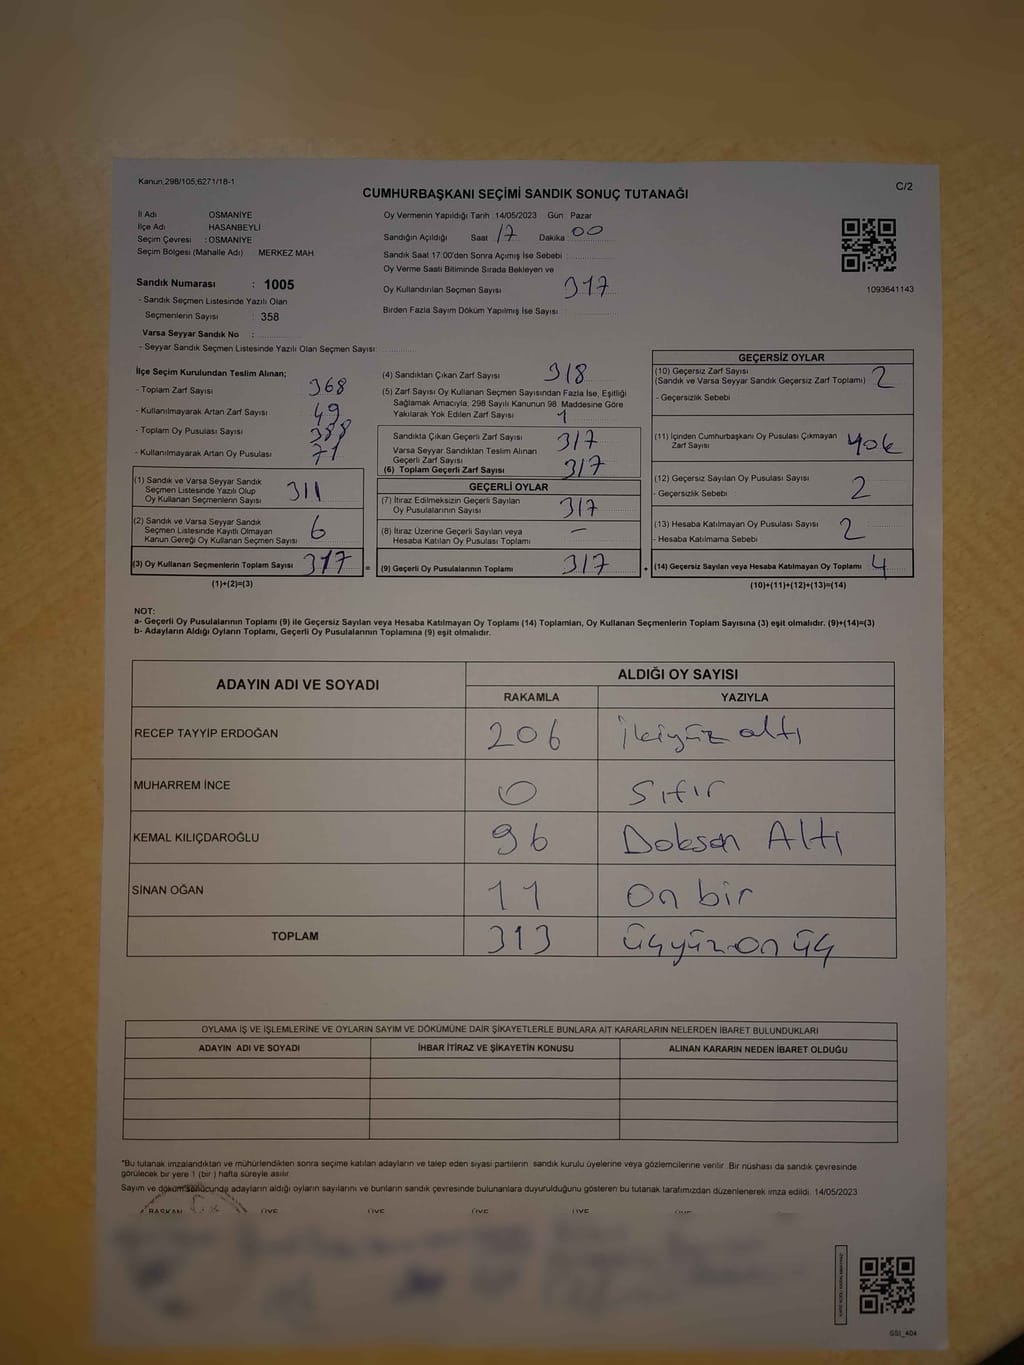 Kanun;298/105;6271/18-1
C/2
CUMHURBAŞKANI SEÇİMİ SANDIK SONUÇ TUTANAĞI
İl Adı OSMANİYE
İlçe Adı HASANBEYLİ
Seçim Çevresi : OSMANİYE
Seçim Bölgesi (Mahalle Adı) MERKEZ MAH
Sandık Numarası : 1005
- Sandık Seçmen Listesinde Yazılı Olan
Seçmenlerin Sayısı : 358
Varsa Seyyar Sandık No :
- Seyyar Sandık Seçmen Listesinde Yazılı Olan Seçmen Sayısı:
Oy Vermenin Yapıldığı Tarih :14/05/2023 Gün : Pazar
Sandığın Açıldığı Saat : 17 Dakika : 00
Sandık Saat 17:00'den Sonra Açımış İse Sebebi :
Oy Verme Saati Bitiminde Sırada Bekleyen ve
Oy Kullandırılan Seçmen Sayısı 317
Birden Fazla Sayım Döküm Yapılmış İse Sayısı :
1093641143
İlçe Seçim Kurulundan Teslim Alınan;
- Toplam Zarf Sayısı 368
- Kullanılmayarak Artan Zarf Sayısı 49
- Toplam Oy Pusulası Sayısı 388
- Kullanılmayarak Artan Oy Pusulası 71
(1) Sandık ve Varsa Seyyar Sandık
Seçmen Listesinde Yazılı Olup
Oy Kullanan Seçmenlerin Sayısı 311
(2) Sandık ve Varsa Seyyar Sandık
Seçmen Listesinde Kayıtlı Olmayan
Kanun Gereği Oy Kullanan Seçmen Sayısı 6
(3) Oy Kullanan Seçmenlerin Toplam Sayısı 317
(1)+(2)=(3)
(4) Sandıktan Çıkan Zarf Sayısı 318
(5) Zarf Sayısı Oy Kullanan Seçmen Sayısından Fazla İse, Eşitliği
Sağlamak Amacıyla, 298 Sayılı Kanunun 98. Maddesine Göre
Yakılarak Yok Edilen Zarf Sayısı 1
Sandıkta Çıkan Geçerli Zarf Sayısı 317
Varsa Seyyar Sandıktan Teslim Alınan
Geçerli Zarf Sayısı
(6) Toplam Geçerli Zarf Sayısı 317
GEÇERLİ OYLAR
(7) İtiraz Edilmeksizin Geçerli Sayılan
Oy Pusulalarının Sayısı 317
(8) İtiraz Üzerine Geçerli Sayılan veya
Hesaba Katılan Oy Pusulası Toplamı -
= (9) Geçerli Oy Pusulalarının Toplamı 317 +
GEÇERSİZ OYLAR
(10) Geçersiz Zarf Sayısı
(Sandık ve Varsa Seyyar Sandık Geçersiz Zarf Toplamı) 2
- Geçersizlik Sebebi
(11) İçinden Cumhurbaşkanı Oy Pusulası Çıkmayan
Zarf Sayısı yok
(12) Geçersiz Sayılan Oy Pusulası Sayısı
- Geçersizlik Sebebi : 2
(13) Hesaba Katılmayan Oy Pusulası Sayısı 2
- Hesaba Katılmama Sebebi
(14) Geçersiz Sayılan veya Hesaba Katılmayan Oy Toplamı 4
(10)+(11)+(12)+(13)=(14)
NOT:
a- Geçerli Oy Pusulalarının Toplamı (9) ile Geçersiz Sayılan veya Hesaba Katılmayan Oy Toplamı (14) Toplamları, Oy Kullanan Seçmenlerin Toplam Sayısına (3) eşit olmalıdır. (9)+(14)=(3)
b- Adayların Aldığı Oyların Toplamı, Geçerli Oy Pusulalarının Toplamına (9) eşit olmalıdır.
ADAYIN ADI VE SOYADI ALDIĞI OY SAYISI
RAKAMLA YAZIYLA
RECEP TAYYİP ERDOĞAN 206 ikiyüz altı
MUHARREM İNCE 0 Sıfır
KEMAL KILIÇDAROĞLU 96 Doksan Altı
SİNAN OĞAN 11 On bir
TOPLAM 313 üçyüz on üç
OYLAMA İŞ VE İŞLEMLERİNE VE OYLARIN SAYIM VE DÖKÜMÜNE DAİR ŞİKAYETLERLE BUNLARA AİT KARARLARIN NELERDEN İBARET BULUNDUKLARI
ADAYIN ADI VE SOYADI İHBAR İTİRAZ VE ŞİKAYETİN KONUSU ALINAN KARARIN NEDEN İBARET OLDUĞU
*Bu tutanak imzalandıktan ve mühürlendikten sonra seçime katılan adayların ve talep eden siyasi partilerin sandık kurulu üyelerine veya gözlemcilerine verilir. Bir nüshası da sandık çevresinde
görülecek bir yere 1 (bir ) hafta süreyle asılır.
Sayım ve döküm sonucunda adayların aldığı oyların sayılarını ve bunların sandık çevresinde bulunanlara duyurulduğunu gösteren bu tutanak tarafımızdan düzenlenerek imza edildi. 14/05/2023
BAŞKAN ÜYE ÜYE ÜYE ÜYE ÜYE
SSI_404